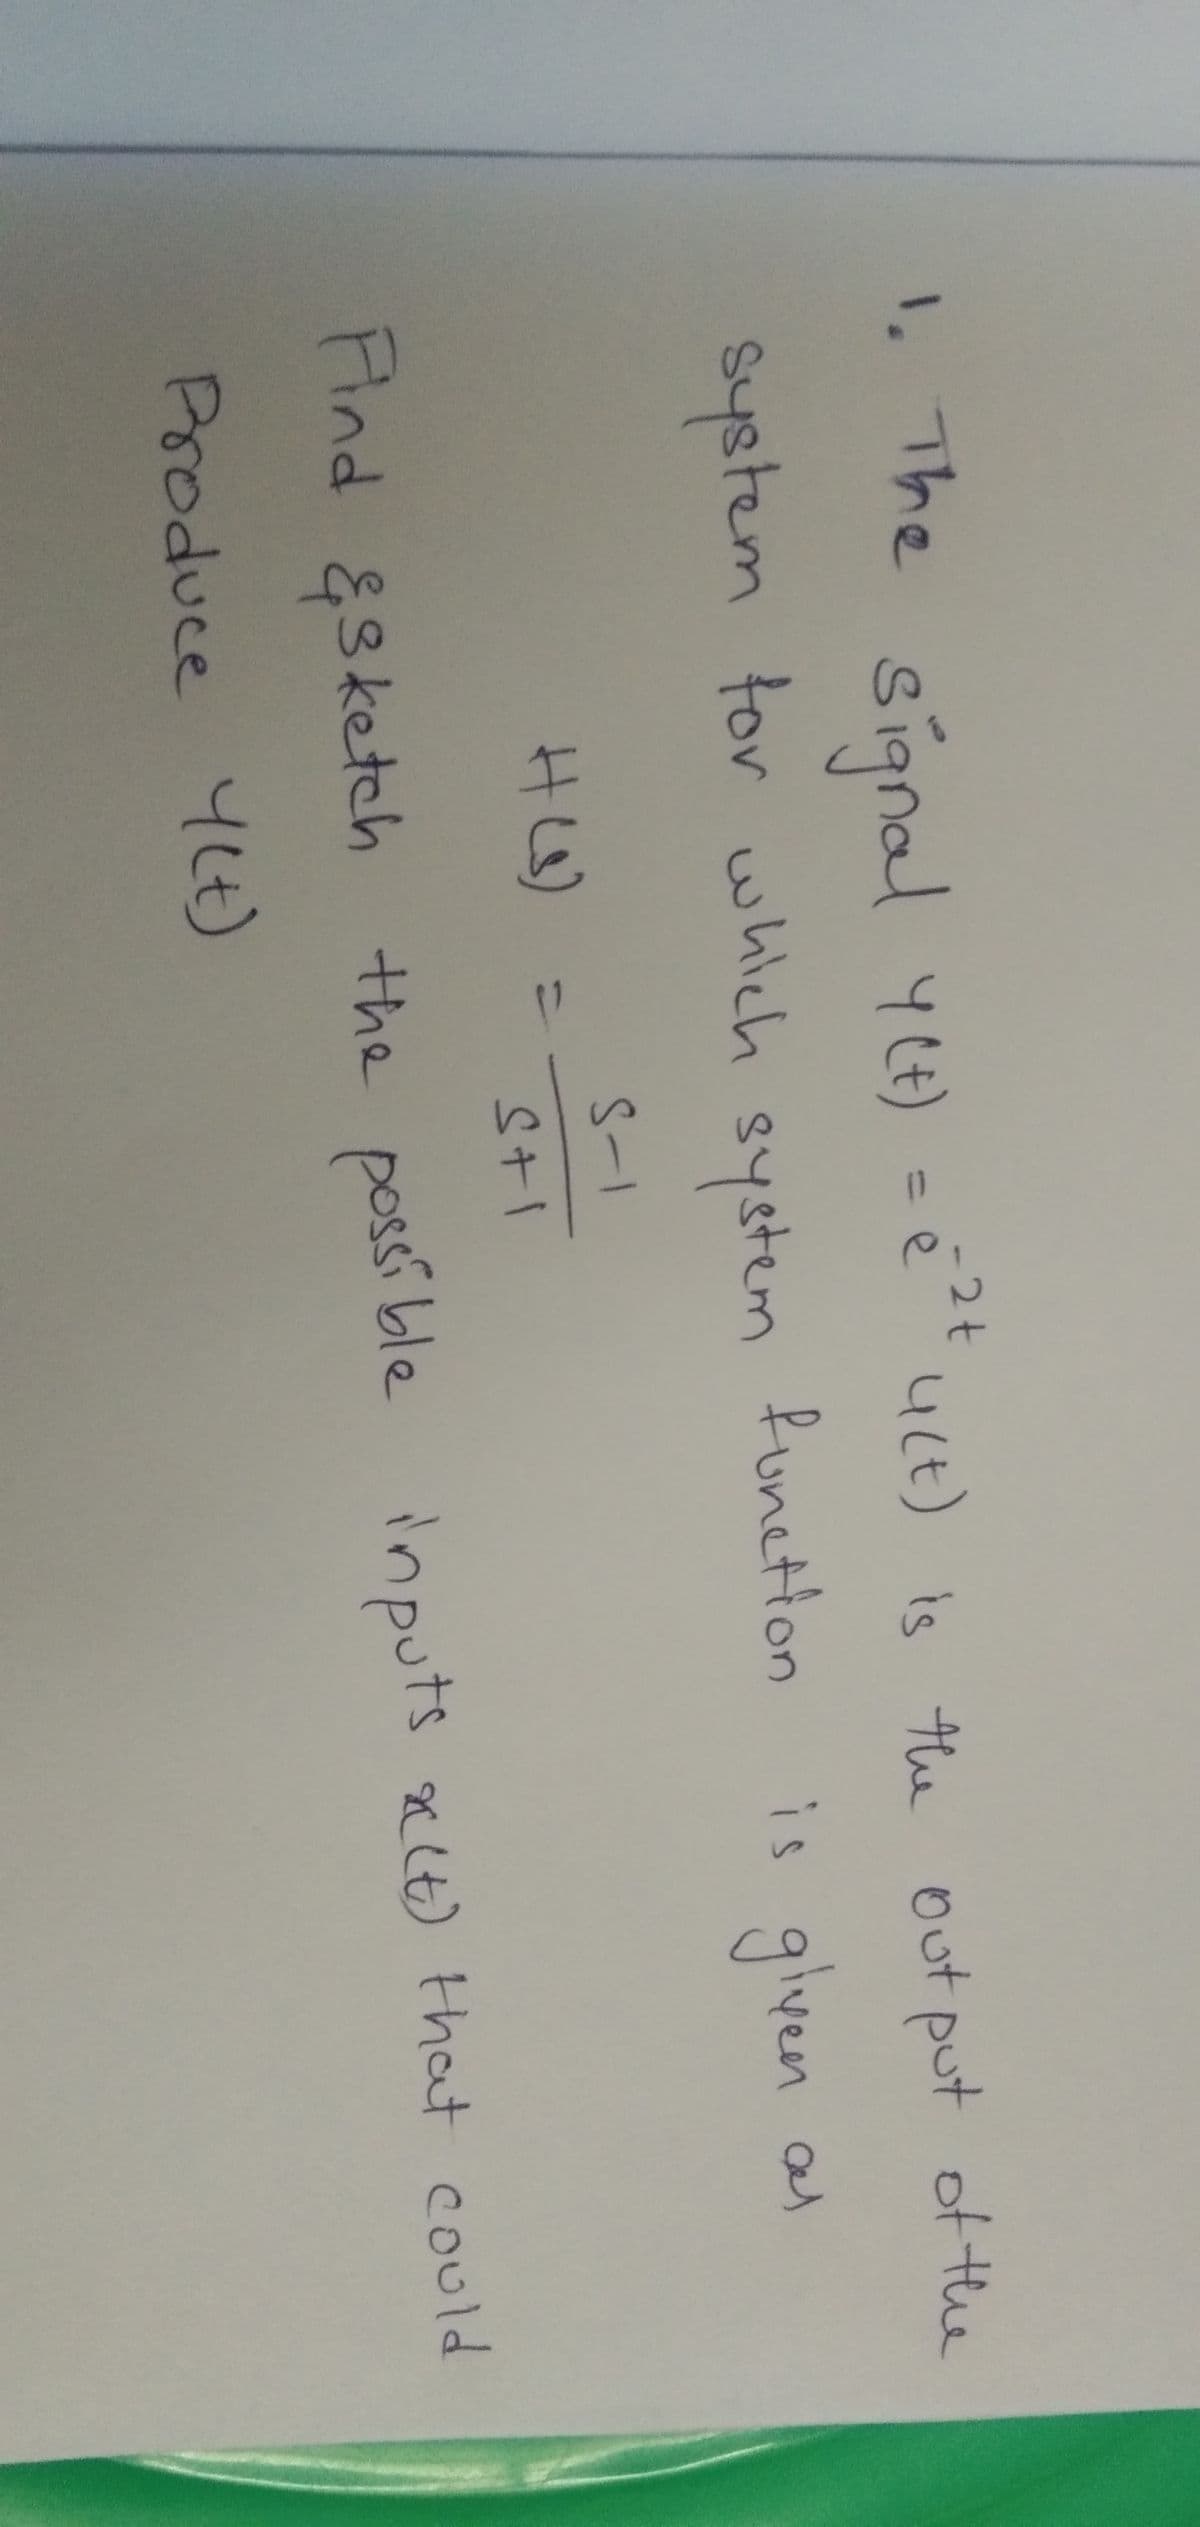 1. The signal y(t) = e^-2t u(t) is the output of the
system for which system function is given as
H(s) = s-1 / s+1
Find & sketch the possible inputs x(t) that could
Produce y(t)